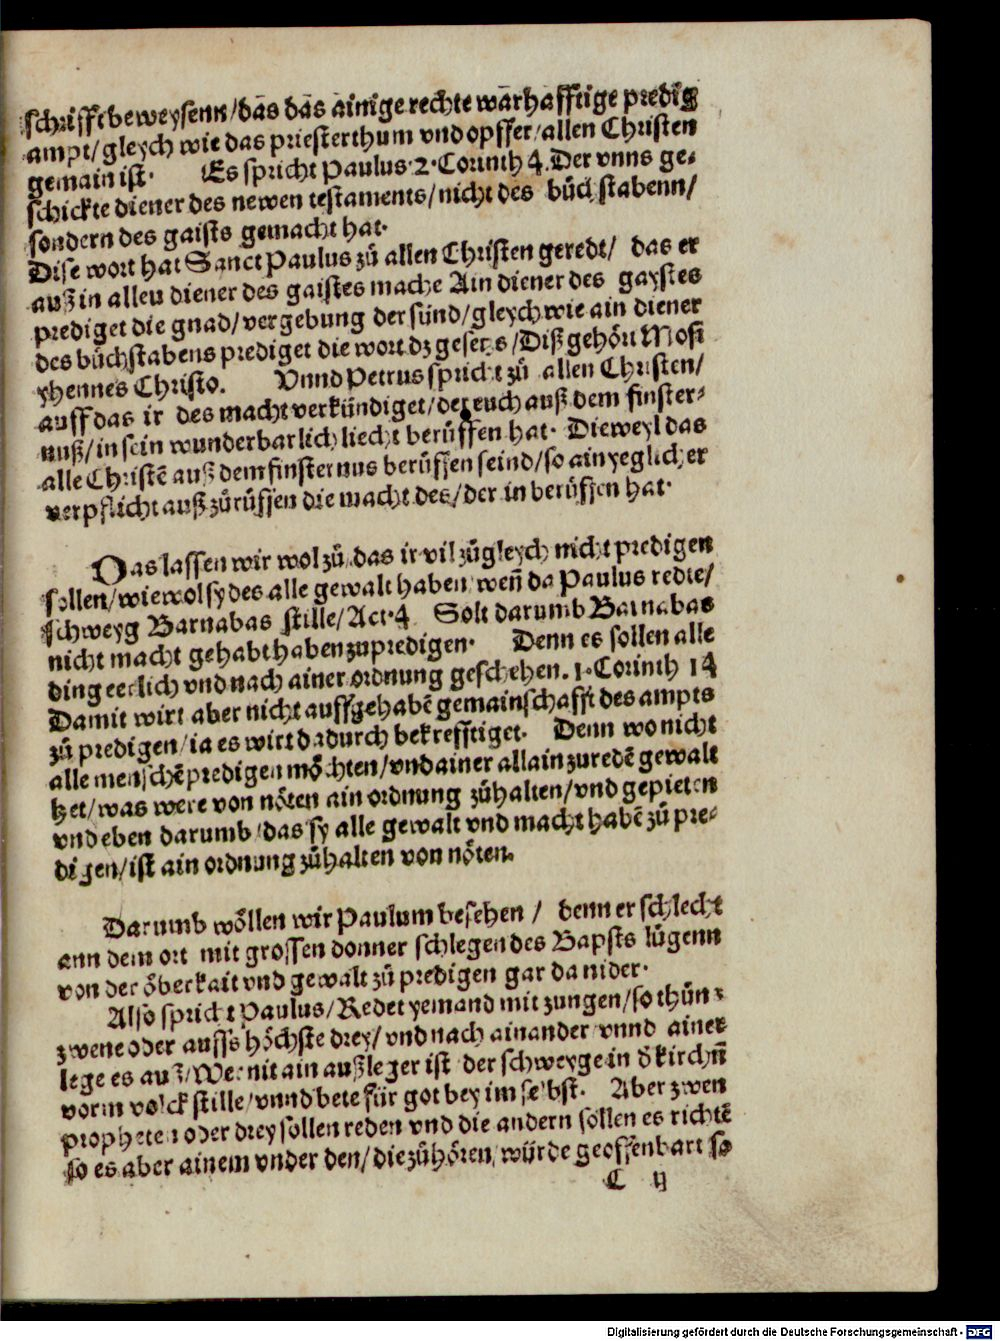 schrifft beweysenn/das das ainige rechte warhafftige predig
ampt/gleych wie das priesterthum vnd opffer/allen Christen
gemain ist. Es spricht Paulus 2. Corinth 4. Der vnns ge-
schickte diener des newen testaments/nicht des bůchstabenn/
sondern des gaists gemacht hat.
Dise wort hat Sanct Paulus zů allen Christen geredt/ das er
auß in allen diener des gaistes mache Ain diener des gaystes
prediget die gnad/vergebung der sünd/gleych wie ain diener
des bůchstabens prediget die wort dz gesetzs/Diß gehört Mosi
yhennes Christo. Vnnd Petrus spricht zů allen Christen/
auff das ir des macht verkündiget/der euch auß dem finster-
nuß/in sein wunderbarlich liecht berůffen hat. Dieweyl das
alle Christē auß dem finsternus berůffen seind/so ain yeglicher
verpflicht auß zůrůffen die macht des/der in berůffen hat.
Das lassen wir wol zů/das ir vil zůgleych nicht predigen
sollen/wiewol sy des alle gewalt haben/weñ da Paulus redte/
schweyg Barnabas stille/Act. 4 Solt darumb Barnabas
nicht macht gehabt haben zu predigen. Denn es sollen alle
ding eerlich vnd nach ainer ordnung geschehen. 1. Corinth 14
Damit wirt aber nicht auffgehabē gemainschafft des ampts
zů predigen/ia es wirt dadurch bekrefftiget. Denn wo nicht
alle menschē predigen möchten/vnd ainer allain zu redē gewalt
het/was were von nöten ain ordnung zůhalten/vnd gepieten
vnd eben darumb/das sy alle gewalt vnd macht habē zů pre-
digen/ist ain ordnung zůhalten von nöten.
Darumb wöllen wir Paulum besehen/ denn er schlecht
ann dem ort mit grossen donner schlegen des Bapsts lůgenn
von der öberkait vnd gewalt zů predigen gar da nider.
Also spricht Paulus/Redet yemand mit zungen/so thůn
zwene oder auffs höchste drey/vnd nach ainander vnnd ainer
lege es auß/Wer nit ain außleger ist der schweyge in ð kirchñ
vorm volck stille/vnnd bete für got bey im selbst. Aber zwen
propheten oder drey sollen reden vnd die andern sollen es richtē
so es aber ainem vnder den/die zůhören/würde geoffenbart so
C ij
Digitalisierung gefördert durch die Deutsche Forschungsgemeinschaft - DFG